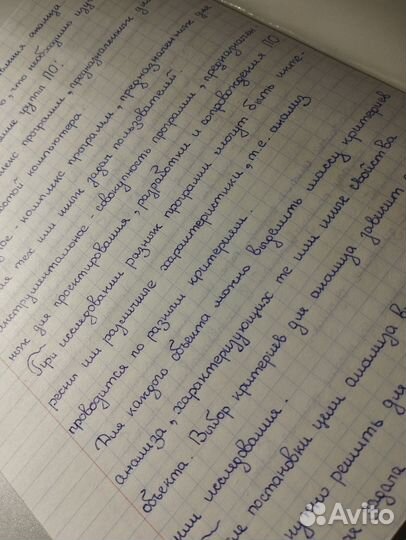 анализа
что необходимо
группы ПО:
комплекс программ, предназначенных для
работой компьютера
- комплекс программ, предназначенных для
тех или иных задач пользователей
инструментальное - совокупность программ, предназначен-
ных для проектирования, разработки и сопровождения ПО
При исследовании разных программ могут быть инте-
ресны или различные характеристики, т.е. анализ
проводится по разным критериям.
Для каждого объекта можно выделить массу критериев
анализа, характеризующих те или иные свойства
объекта. Выбор критериев для анализа зависит
исследования.
постановки цели анализа
нужно решить для
задача
Avito